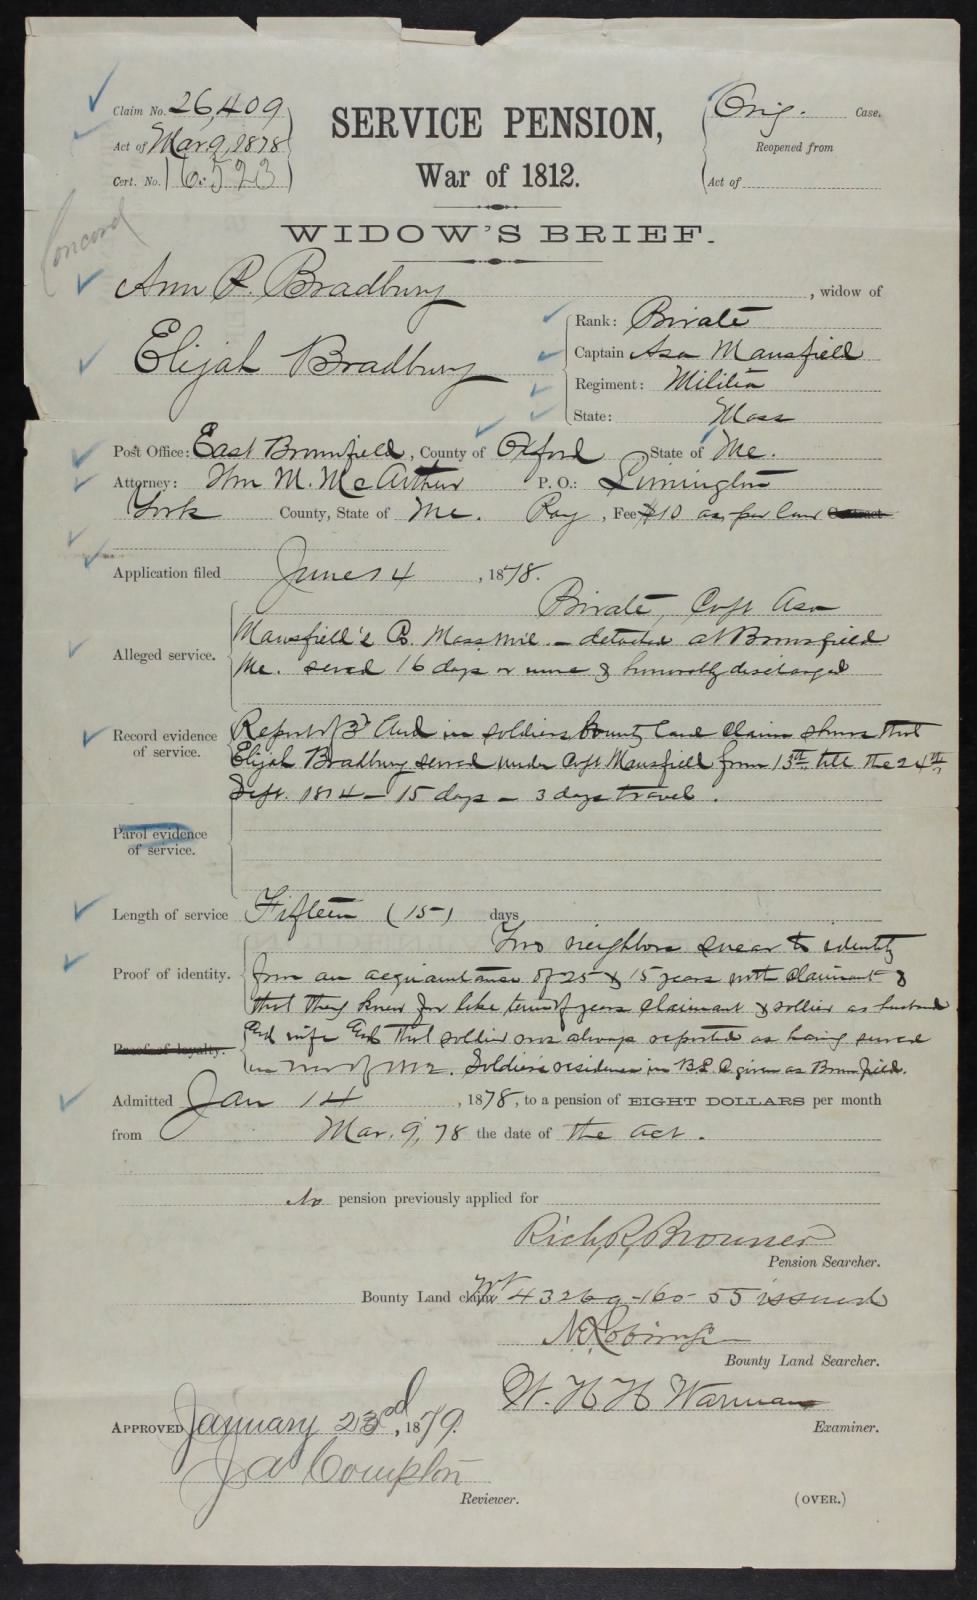 Claim No. 26,409
Act of Mar. 9, 1878
Cert. No. 16.523
SERVICE PENSION,
War of 1812.
Orig. Case.
Reopened from
Act of
Concord
WIDOW'S BRIEF.
Ann R. Bradbury, widow of
Elijah Bradbury
Rank: Private
Captain Asa Mansfield
Regiment: Militia
State: Mass
Post Office: East Brownfield, County of Oxford State of Me.
Attorney: Wm M. McArthur P. O.: Limington
York County, State of Me. Pay, Fee $10 as per law Contract
Application filed June 14, 1878.
Alleged service. Private, Capt Asa
Mansfield's Co. Mass. Mil. - detached at Brownfield
Me. served 16 days or more & honorably discharged
Record evidence of service. Report of 3d Aud in soldiers bounty land claim shows that
Elijah Bradbury served under Capt Mansfield from 13th till the 24th
Sept. 1814 - 15 days - 3 days travel.
Parol evidence of service.
Length of service Fifteen (15) days
Proof of identity. Two neighbors swear to identity
from an acquaintance of 25 & 15 years with claimant &
that they knew for like term of years claimant & soldier as husband
Proof of loyalty. and wife and that soldier was always reported as having served
in war of 1812. Soldier's residence in B.L. C given as Brownfield.
Admitted Jan 14, 1878, to a pension of EIGHT DOLLARS per month
from Mar. 9, 78 the date of the act.
No pension previously applied for
Rich. R. Brouner
Pension Searcher.
Bounty Land claim Wt 43269-160-55 issued
Bounty Land Searcher.
W. H H Warman
Examiner.
APPROVED January 23rd, 1879.
J A Compton
Reviewer.
(OVER.)